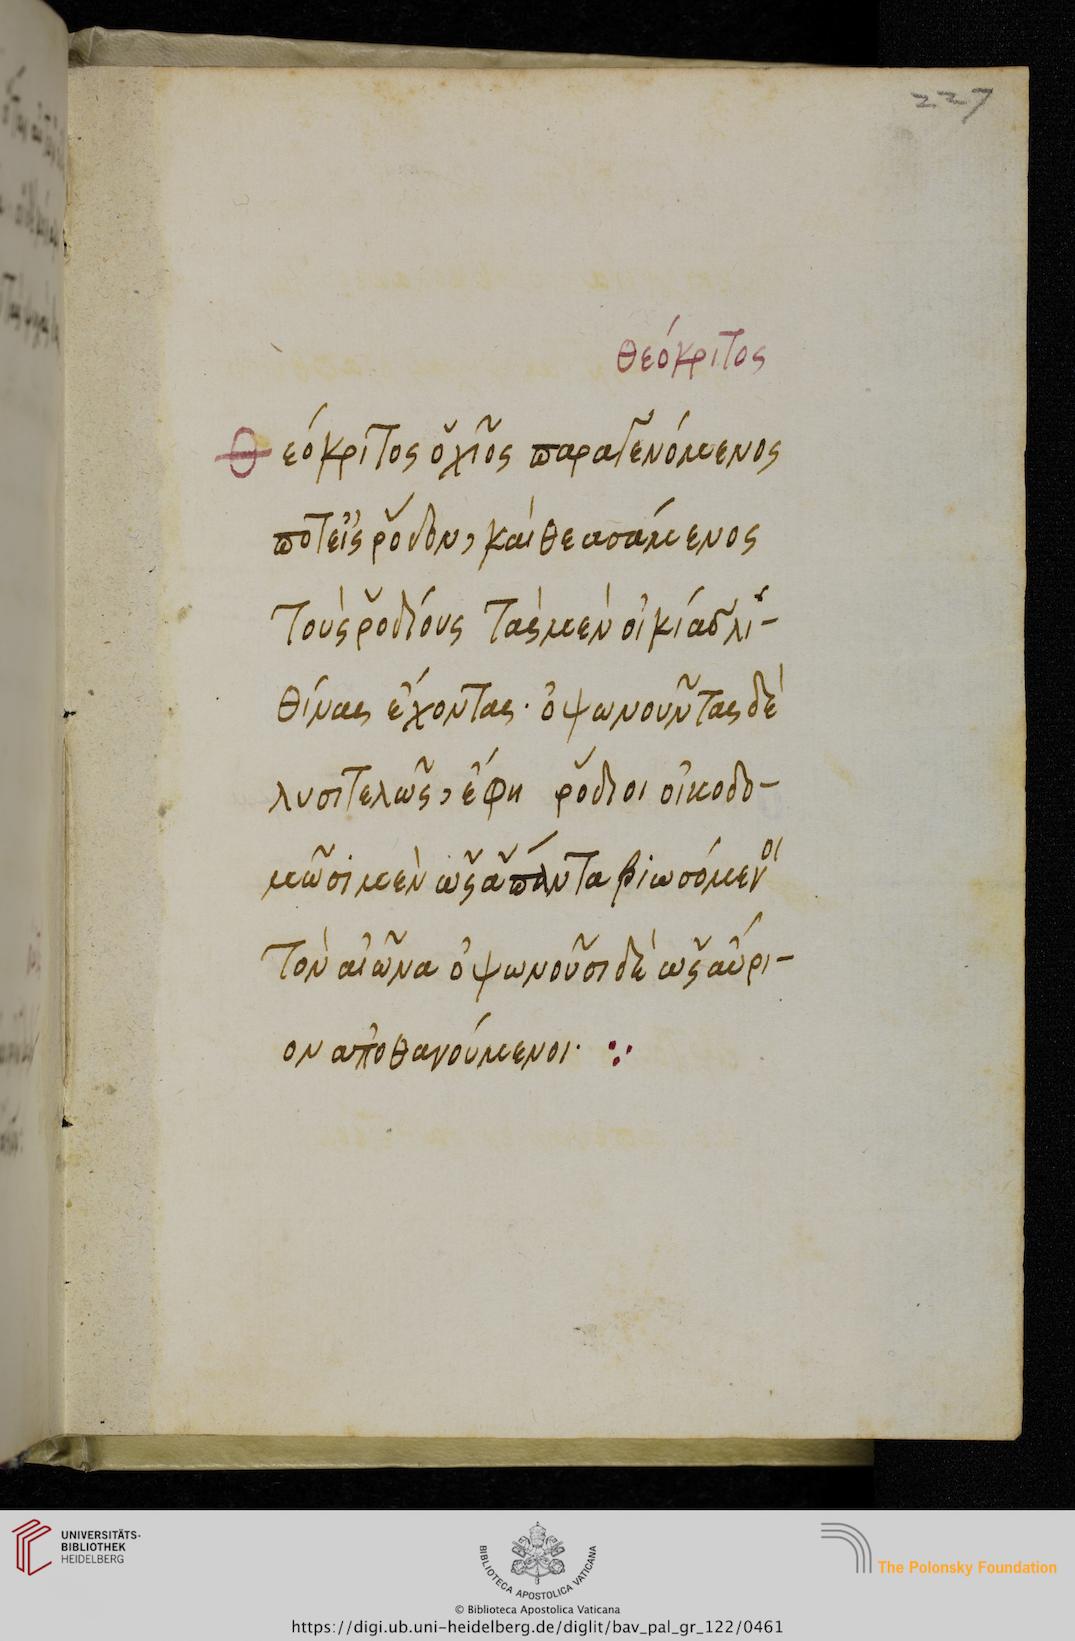 227
Θεόκριτος
Θεόκριτος ὁ χῖος παραγενόμενος
ποτ εἰς ῥόδον, καὶ θεασάμενος
τοὺς ῥοδίους τὰς μὲν οἰκίας λι-
θίνας ἔχοντας· ὀψωνοῦντας δὲ
λυσιτελῶς, ἔφη ῥόδιοι οἰκοδο-
μῶσι μὲν ὡς ἅπαντα βιωσόμενοι
τὸν αἰῶνα ὀψωνοῦσι δὲ ὡς αὔρι-
ον ἀποθανούμενοι·
UNIVERSITÄTS-
BIBLIOTHEK
HEIDELBERG
BIBLIOTECA APOSTOLICA VATICANA
The Polonsky Foundation
© Biblioteca Apostolica Vaticana
https://digi.ub.uni-heidelberg.de/diglit/bav_pal_gr_122/0461